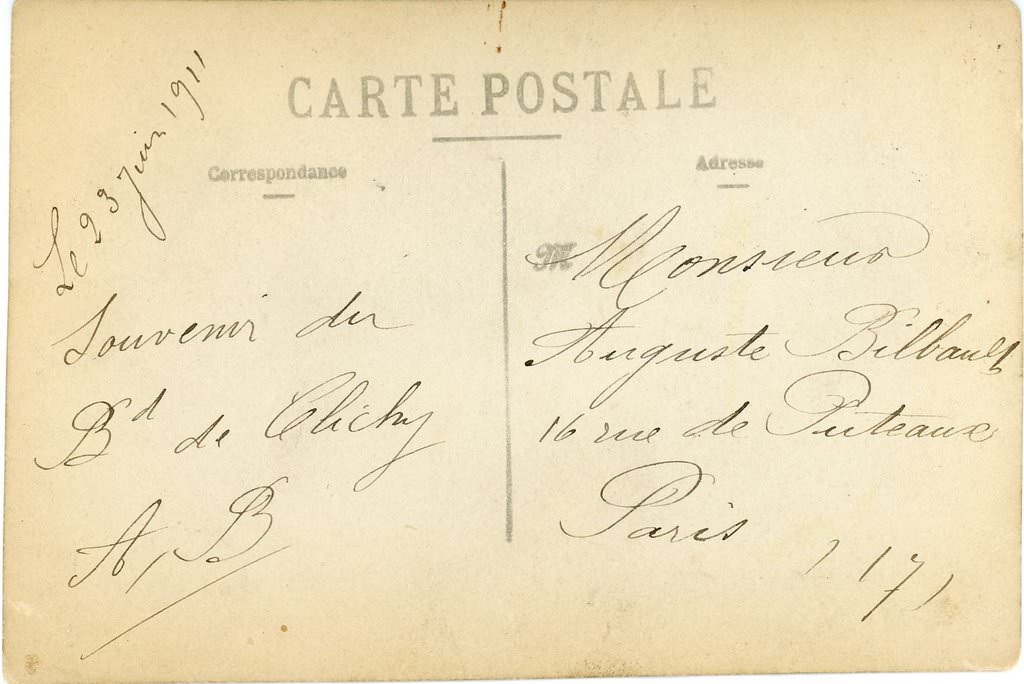 CARTE POSTALE
Correspondance
Le 23 Juin 1911
Souvenir du
Bd de Clichy
A, B
Adresse
M Monsieur
Auguste Bilbault
16 rue de Puteaux
Paris
(17)